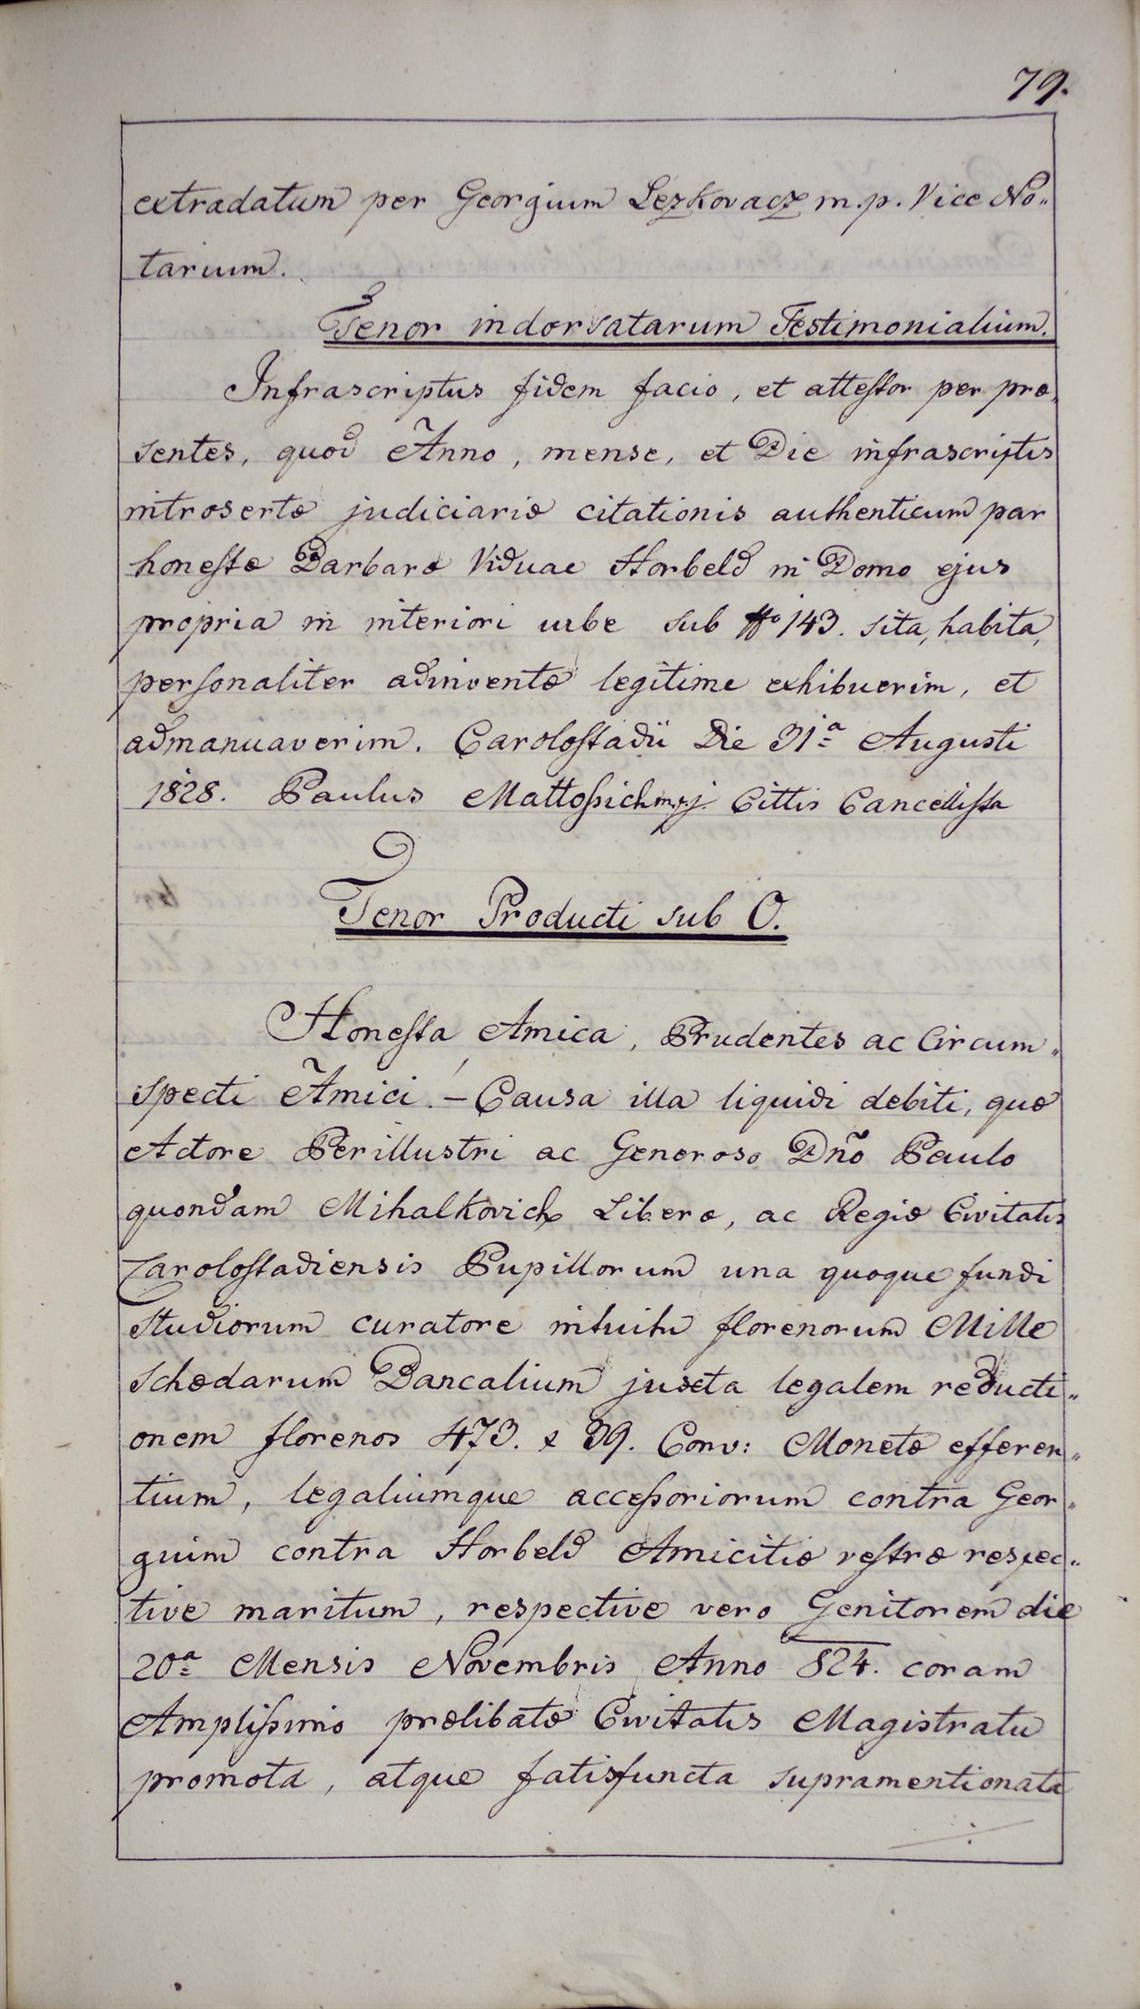 79.
extradatum per Georgium Lezkovacz m.p. Vice No„
tarium.
Tenor indorsatarum Testimonialium.
Infrascriptus fidem facio, et attestor per præ„
sentes, quod Anno, mense, et Die infrascriptis
introsertæ judiciariæ citationis authenticum par
honestæ Barbaræ Viduae Horbeld in Domo ejus
propria in interiori urbe sub No 143. sita, habita,
personaliter adinventæ legitime exhibuerim, et
admanuaverim. Carolostadii Die 31a Augusti
1828. Paulus Mattossich mpj. Cittis Cancellista
Tenor Producti sub O.
Honesta Amica, Prudentes ac Circum„
specti Amici. – Causa illa liquidi debiti, quæ
Actore Perillustri ac Generoso Dño Paulo
quondam Mihalkovich Liberæ, ac Regiæ Civitatis
Carolostadiensis Pupillorum una quoque fundi
Studiorum curatore intuitu florenorum Mille
Schedarum Bancalium juxta legalem reducti„
onem florenos 473. x 39. Conv: Monetæ efferen„
tium, legaliumque accessoriorum contra Geor„
guim contra Horbeld Amicitiæ vestræ respec„
tive maritum, respective vero Genitorem die
20a Mensis Novembris Anno 824. coram
Amplissimo prælibatæ Civitatis Magistratu
promota, atque fatisfuncta supramentionata